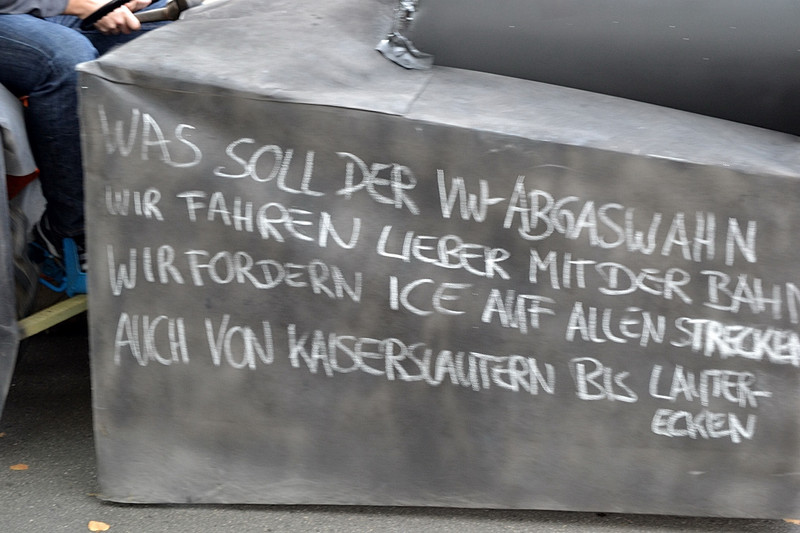 WAS SOLL DER VW-ABGASWAHN
WIR FAHREN LIEBER MIT DER BAHN
WIR FORDERN ICE AUF ALLEN STRECKEN
AUCH VON KAISERSLAUTERN BIS LAUTER-
ECKEN